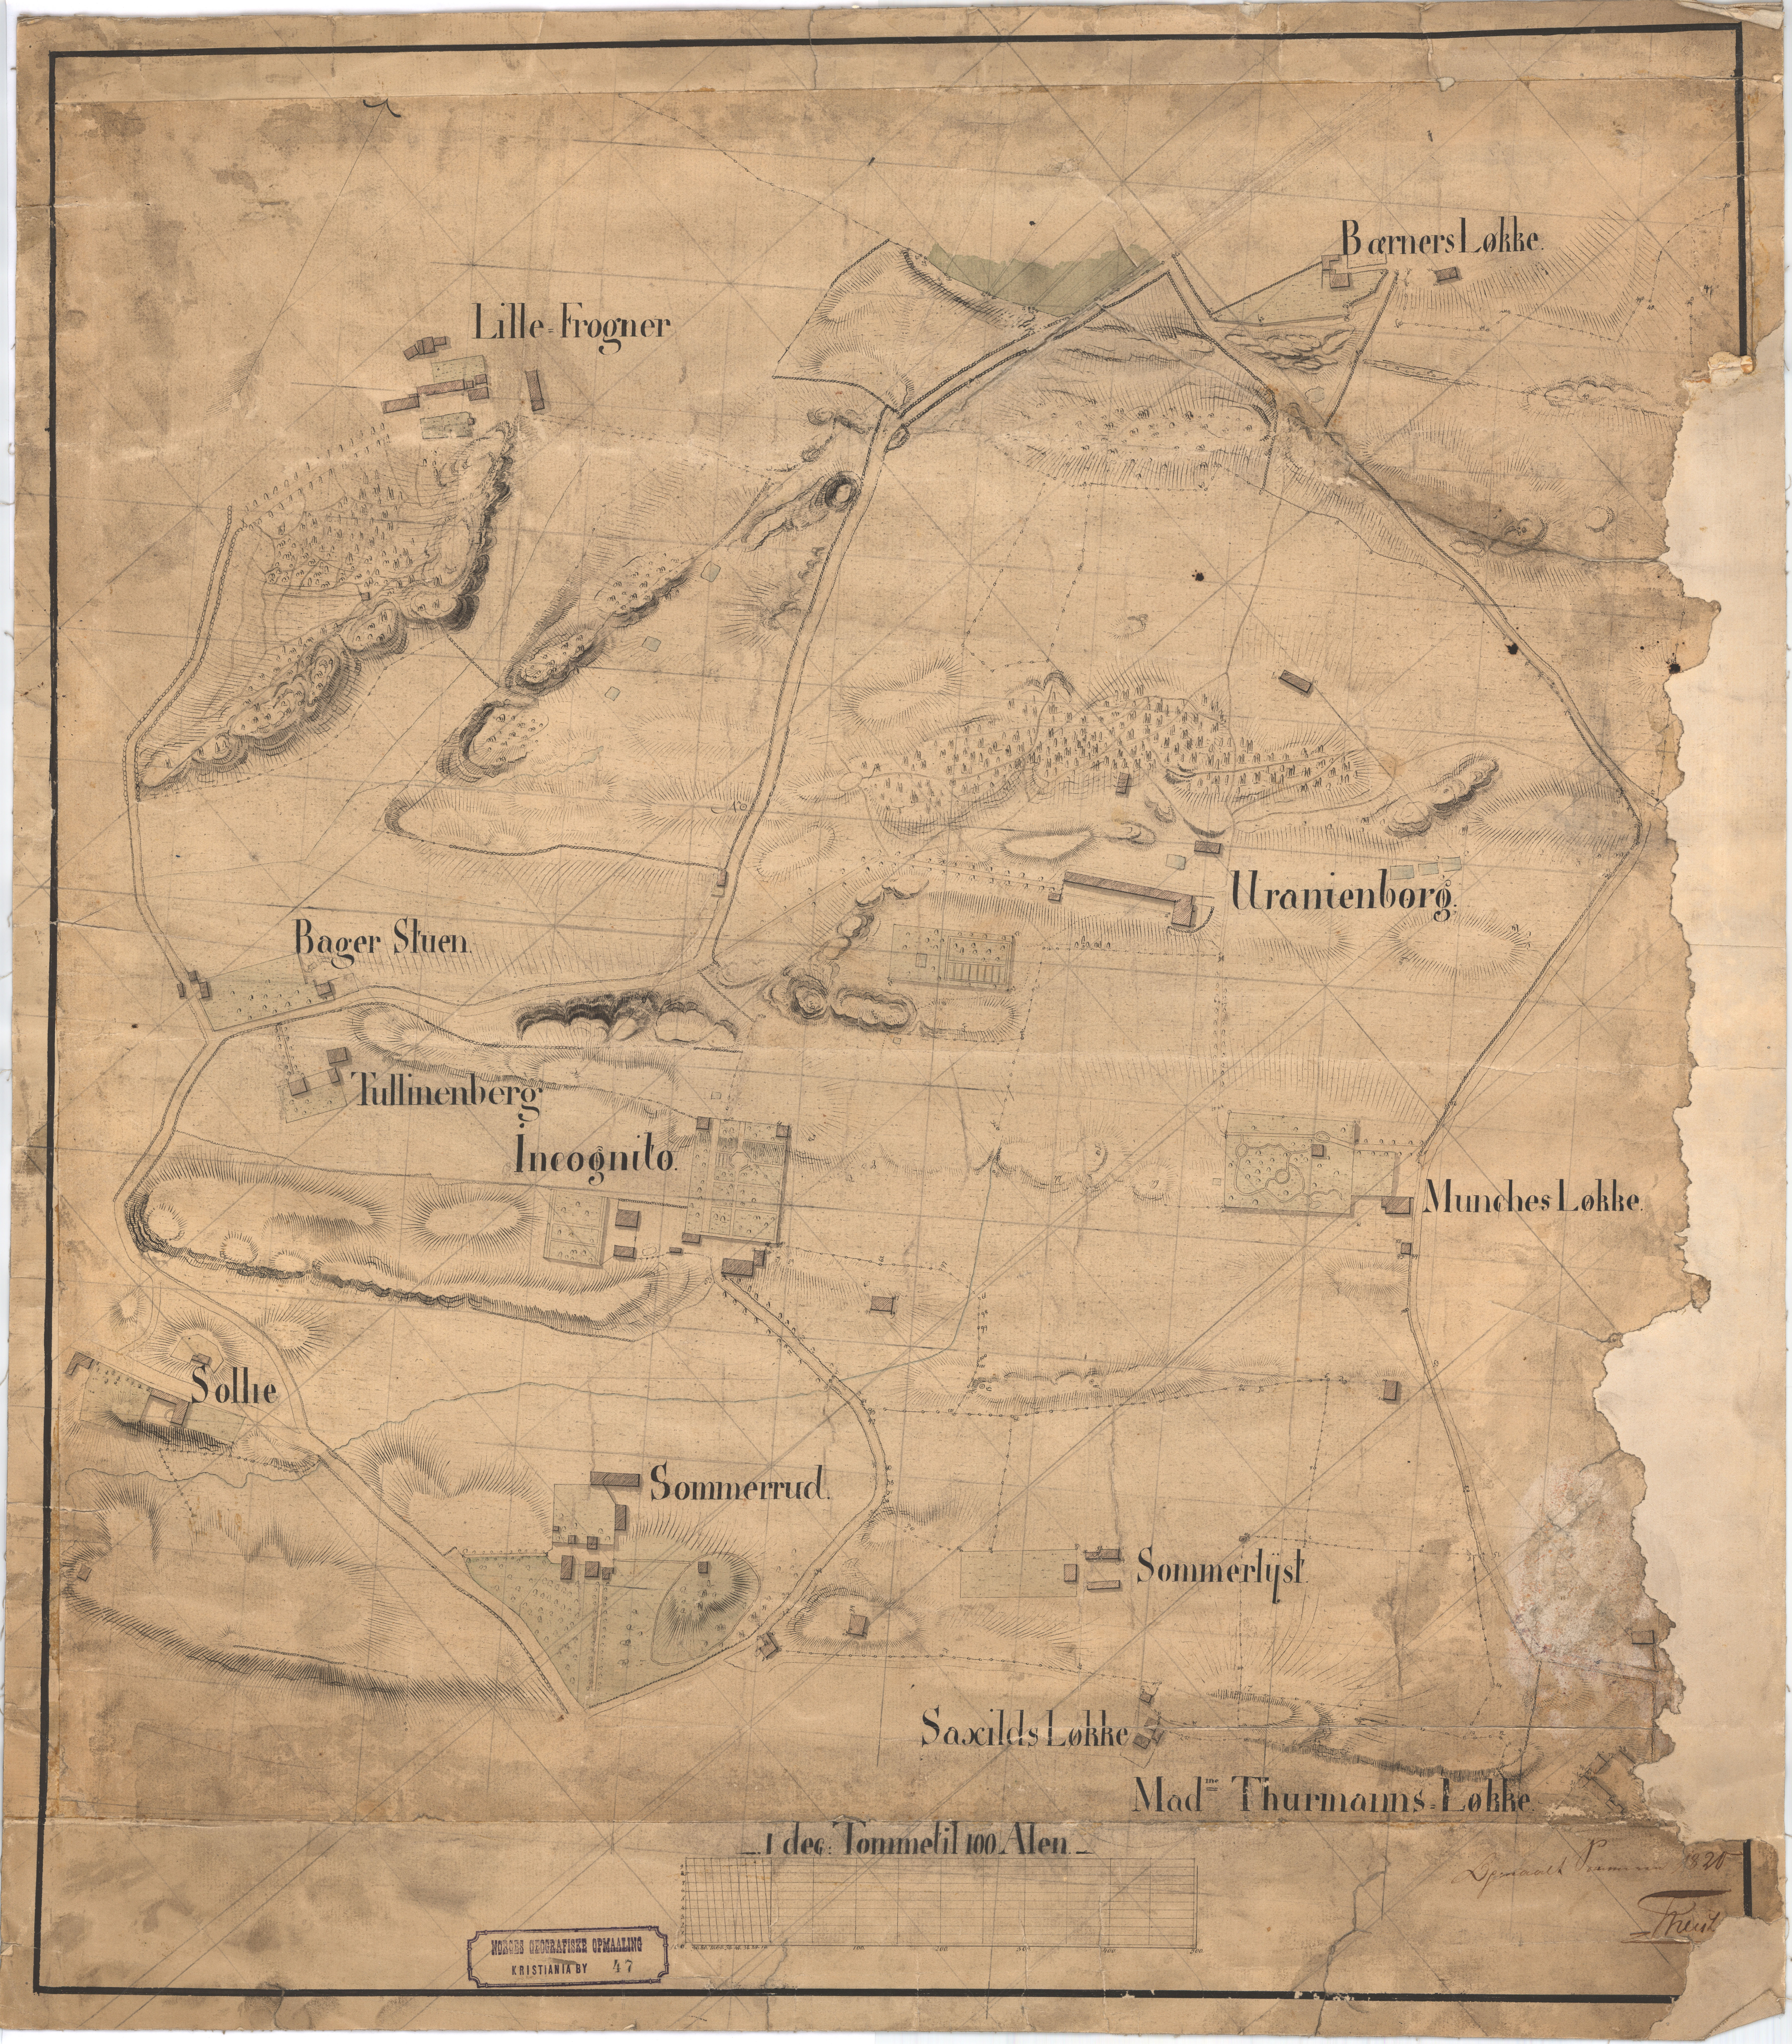 Bærners Løkke.
Lille-Frogner
Uranienborg.
Bager Stuen.
Tullinenberg.
Incognito.
Munches Løkke.
Sollie
Sommerrud.
Sommerlyst.
Saxilds Løkke
Mad<sup>me</sup> Thurmanns-Løkke.
1 dec: Tomme til 100 Alen.
1820
NORGES GEOGRAFISKE OPMAALING
KRISTIANIA BY 47